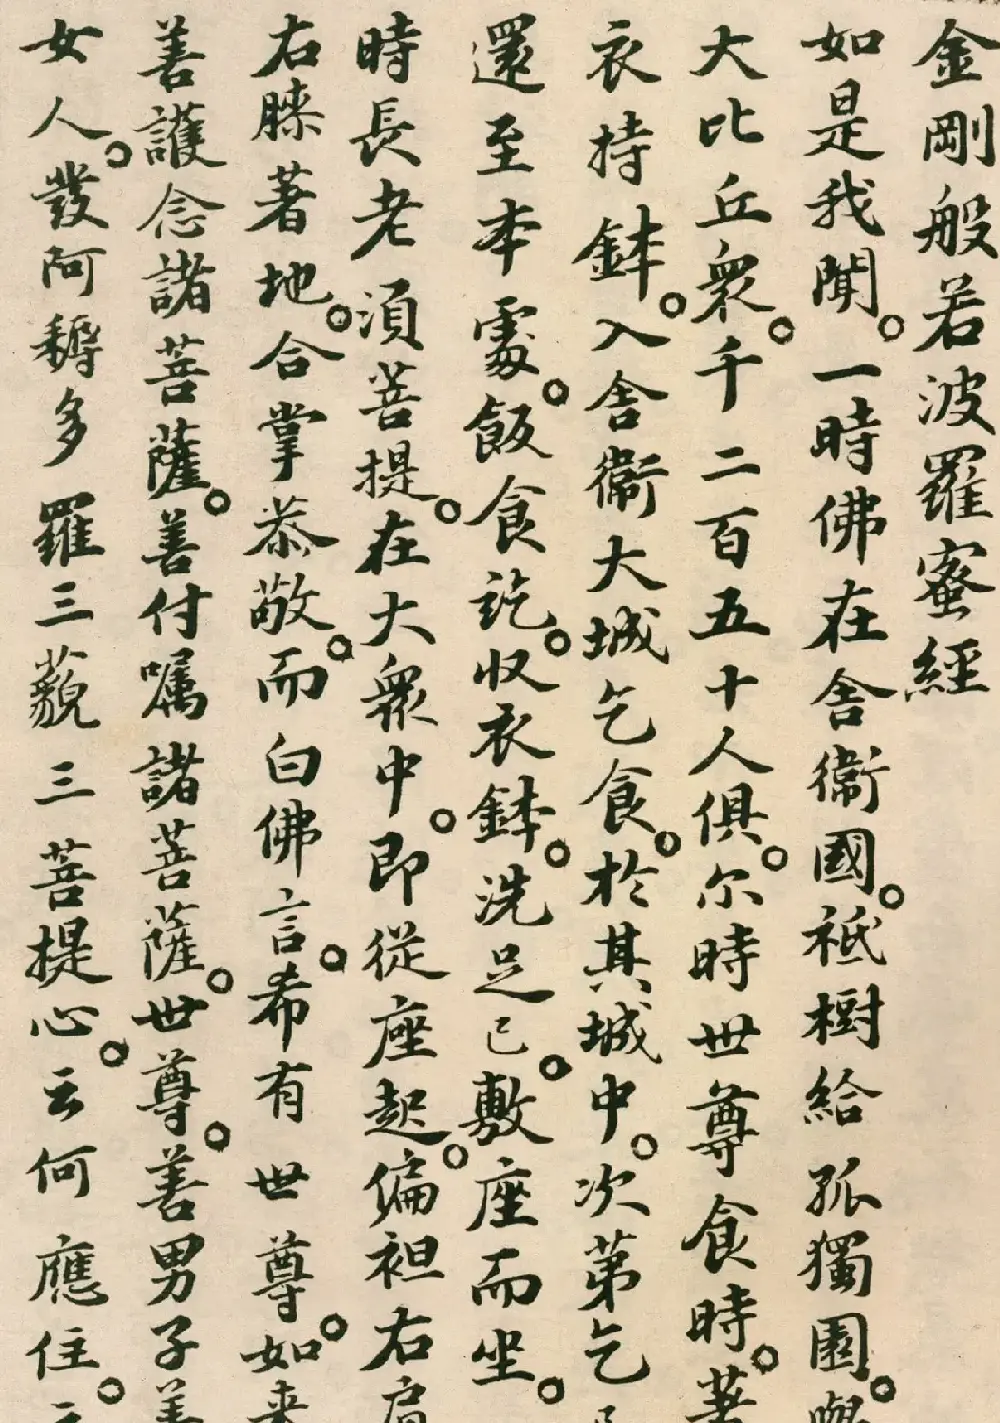 金剛般若波羅蜜經
如是我聞。一時佛在舍衛國。祇樹給孤獨園。與
大比丘衆。千二百五十人俱。尔時世尊食時。著
衣持鉢。入舍衛大城乞食。於其城中。次第乞
還至本處。飯食訖。収衣鉢。洗足已。敷座而坐。
時長老須菩提。在大衆中。即從座起。偏袒右肩
右膝著地。合掌恭敬。而白佛言。希有世尊。如来
善護念諸菩薩。善付嘱諸菩薩。世尊。善男子善
女人。發阿耨多羅三藐三菩提心。云何應住。